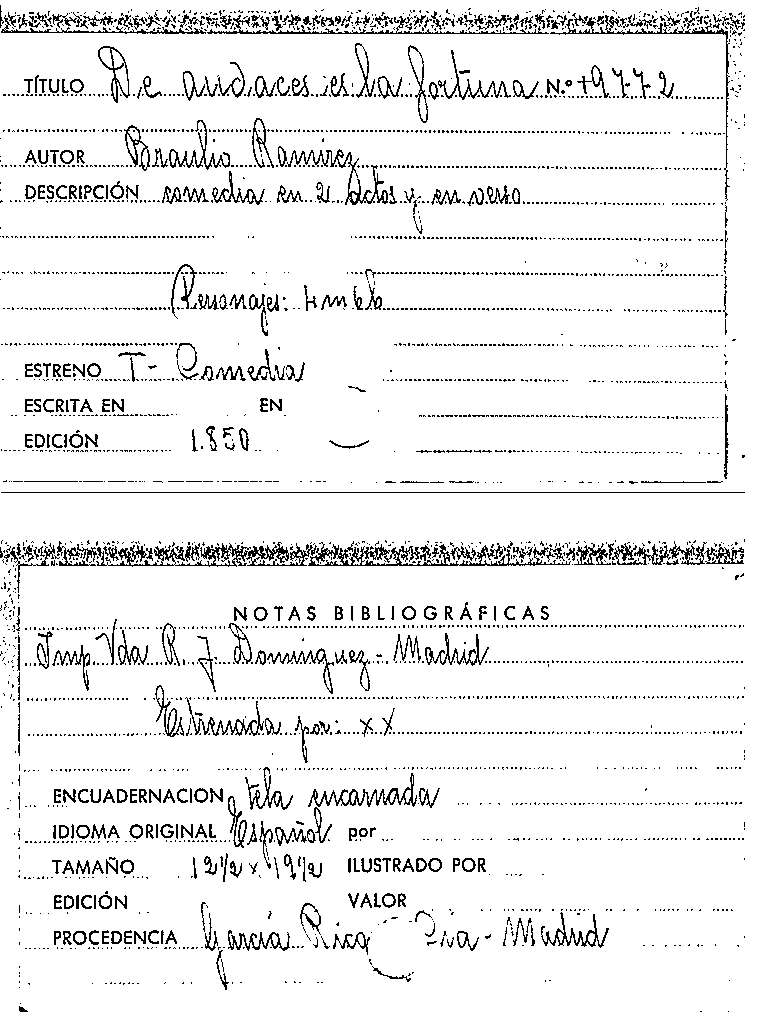 TÍTULO De audaces es la fortuna N.º 1977-2
AUTOR Braulio Ramirez
DESCRIPCIÓN comedia en 2 actos y en verso
Personajes: 4 m 6 h
ESTRENO T- Comedia
ESCRITA EN EN
EDICIÓN 1.850
NOTAS BIBLIOGRÁFICAS
Imp. Vda R. J. Dominguez - Madrid
Estrenada por: X X
ENCUADERNACION tela encarnada
IDIOMA ORIGINAL Español por
TAMAÑO 12 1/2 x 19 1/2 ILUSTRADO POR
EDICIÓN VALOR
PROCEDENCIA García Rico Cia - Madrid